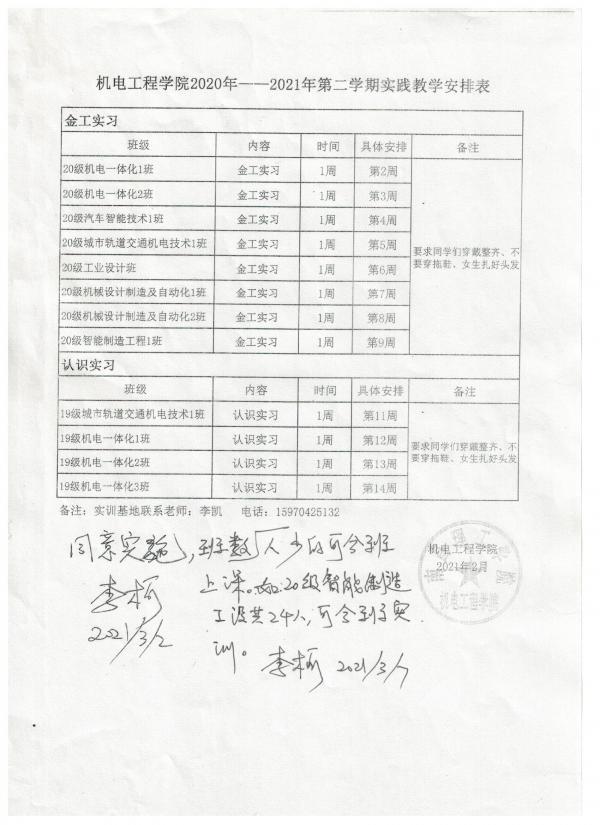 机电工程学院2020年——2021年第二学期实践教学安排表
金工实习
班级 内容 时间 具体安排 备注
20级机电一体化1班 金工实习 1周 第2周
20级机电一体化2班 金工实习 1周 第3周
20级汽车智能技术1班 金工实习 1周 第4周
20级城市轨道交通机电技术1班 金工实习 1周 第5周
要求同学们穿戴整齐、不
要穿拖鞋、女生扎好头发
20级工业设计班 金工实习 1周 第6周
20级机械设计制造及自动化1班 金工实习 1周 第7周
20级机械设计制造及自动化2班 金工实习 1周 第8周
20级智能制造工程1班 金工实习 1周 第9周
认识实习
班级 内容 时间 具体安排 备注
19级城市轨道交通机电技术1班 认识实习 1周 第11周
19级机电一体化1班 认识实习 1周 第12周
要求同学们穿戴整齐、不
要穿拖鞋、女生扎好头发
19级机电一体化2班 认识实习 1周 第13周
19级机电一体化3班 认识实习 1周 第14周
备注：实训基地联系老师：李凯 电话：15970425132
机电工程学院
2021年2月
机电工程学院
同意实施，班数人少的可合班
上课。如:20级智能制造
工设共24人,可合到实
训。
李柯
2021/3/2
李柯 2021/3/7